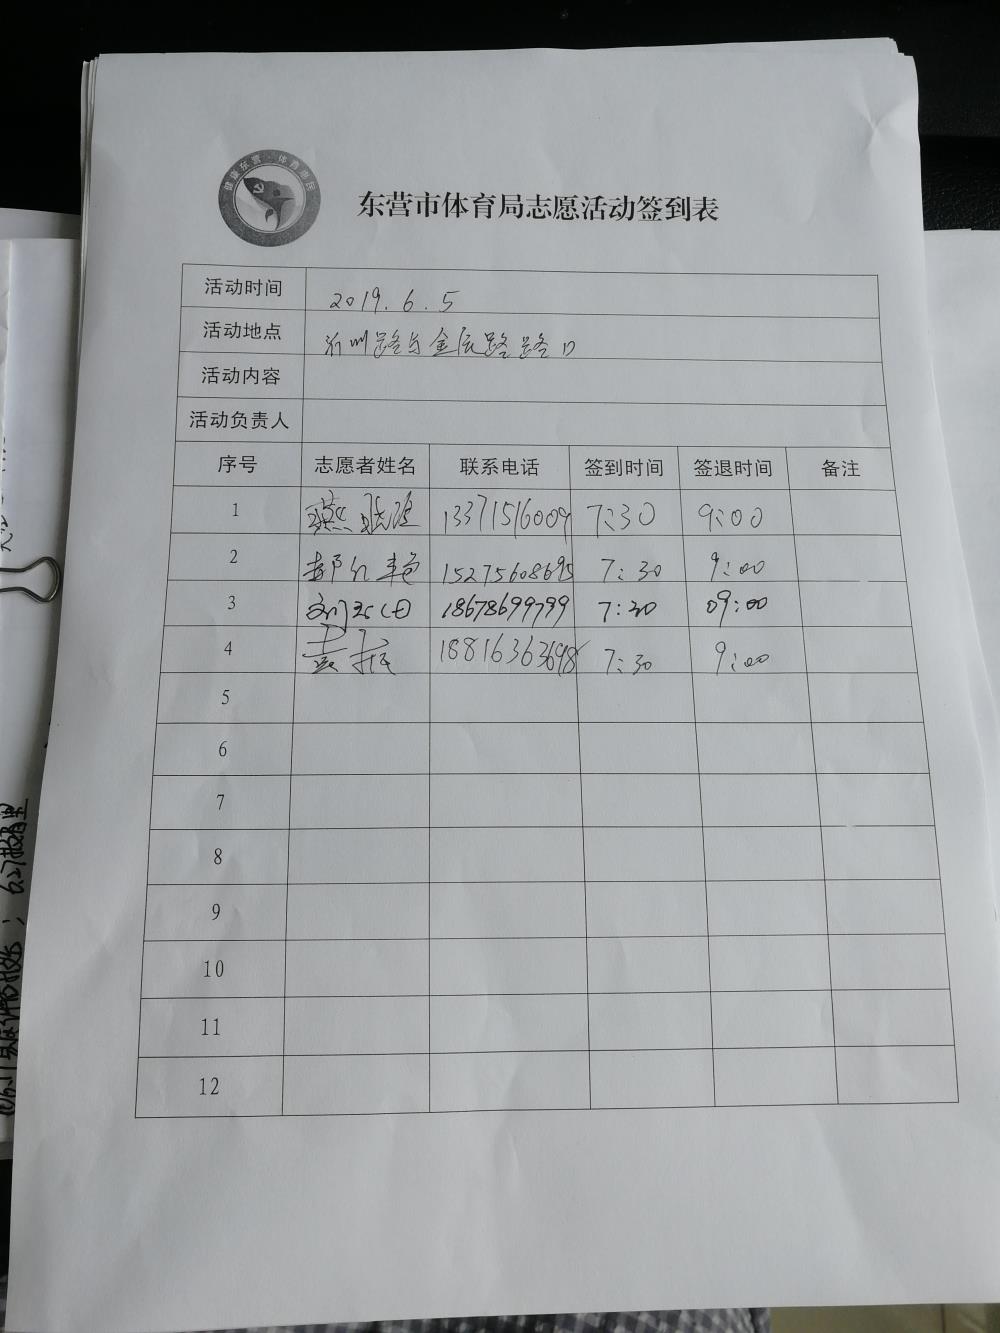 健康东营 体育惠民
东营市体育局志愿活动签到表
活动时间 2019.6.5
活动地点 沂州路与金辰路路口
活动内容
活动负责人
序号 志愿者姓名 联系电话 签到时间 签退时间 备注
1 13371516009 7:30 9:00
2 郝红艳 15275608695 7:30 9:00
3 18678699799 7:30 09:00
4 18816363698 7:30 9:00
5
6
7
8
9
10
11
12